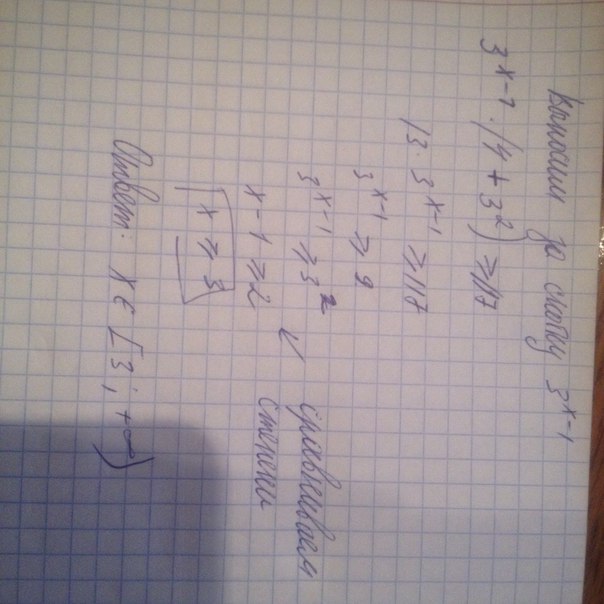 Выносим за скобку 3^{x-1}
3^{x-1} · (4 + 3^2) ≥ 117
13 · 3^{x-1} ≥ 117
3^{x-1} ≥ 9
3^{x-1} ≥ 3^2
сравниваем
степени
x - 1 ≥ 2
x ≥ 3
Ответ: x ∈ [3; +∞)